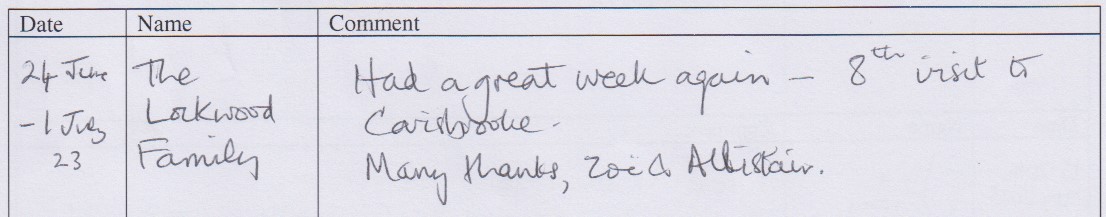 Date Name Comment
24 June The Had a great week again – 8th visit to
– 1 July Lockwood Carisbrooke.
23 Family Many thanks, Zoë & Alistair.